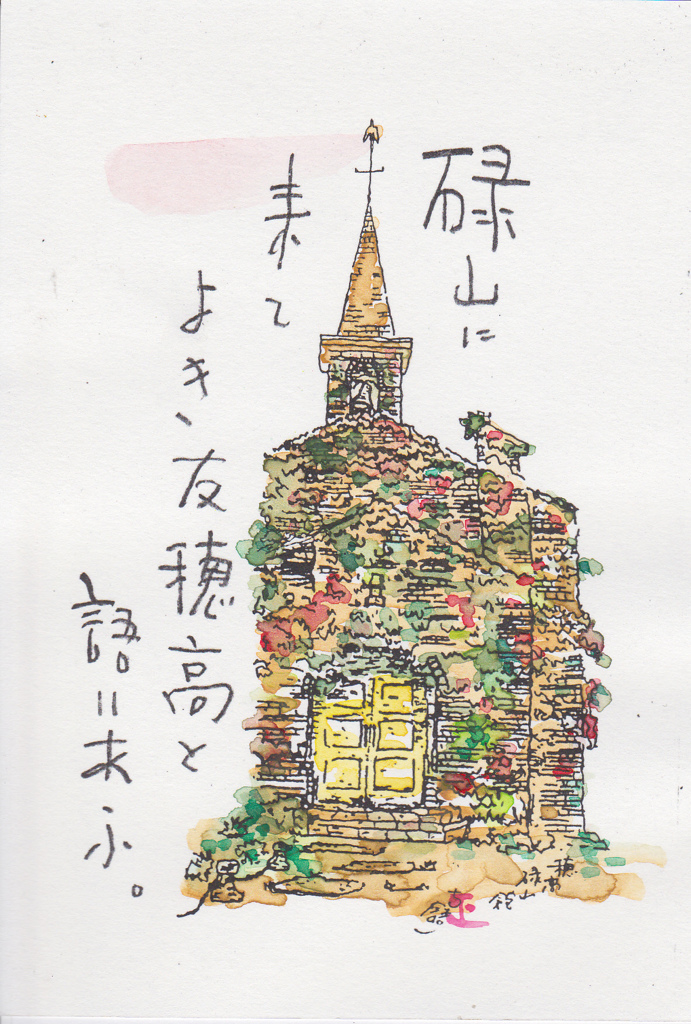 碌山に
来て
よき友穂高と
語りあふ。
穂高
碌山
館